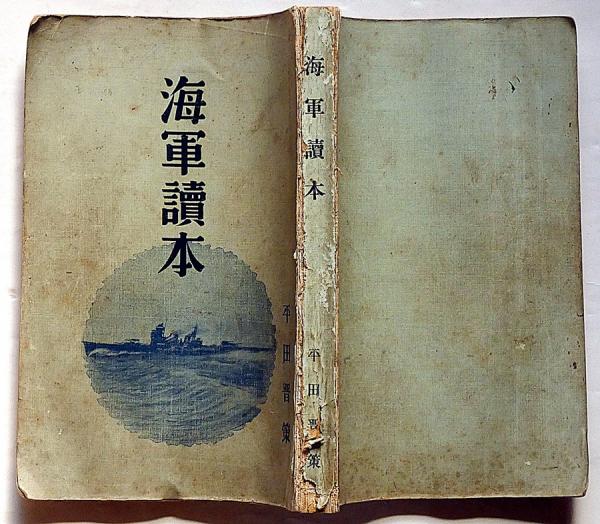 海軍讀本
平田晋策
海軍讀本
平田晋策